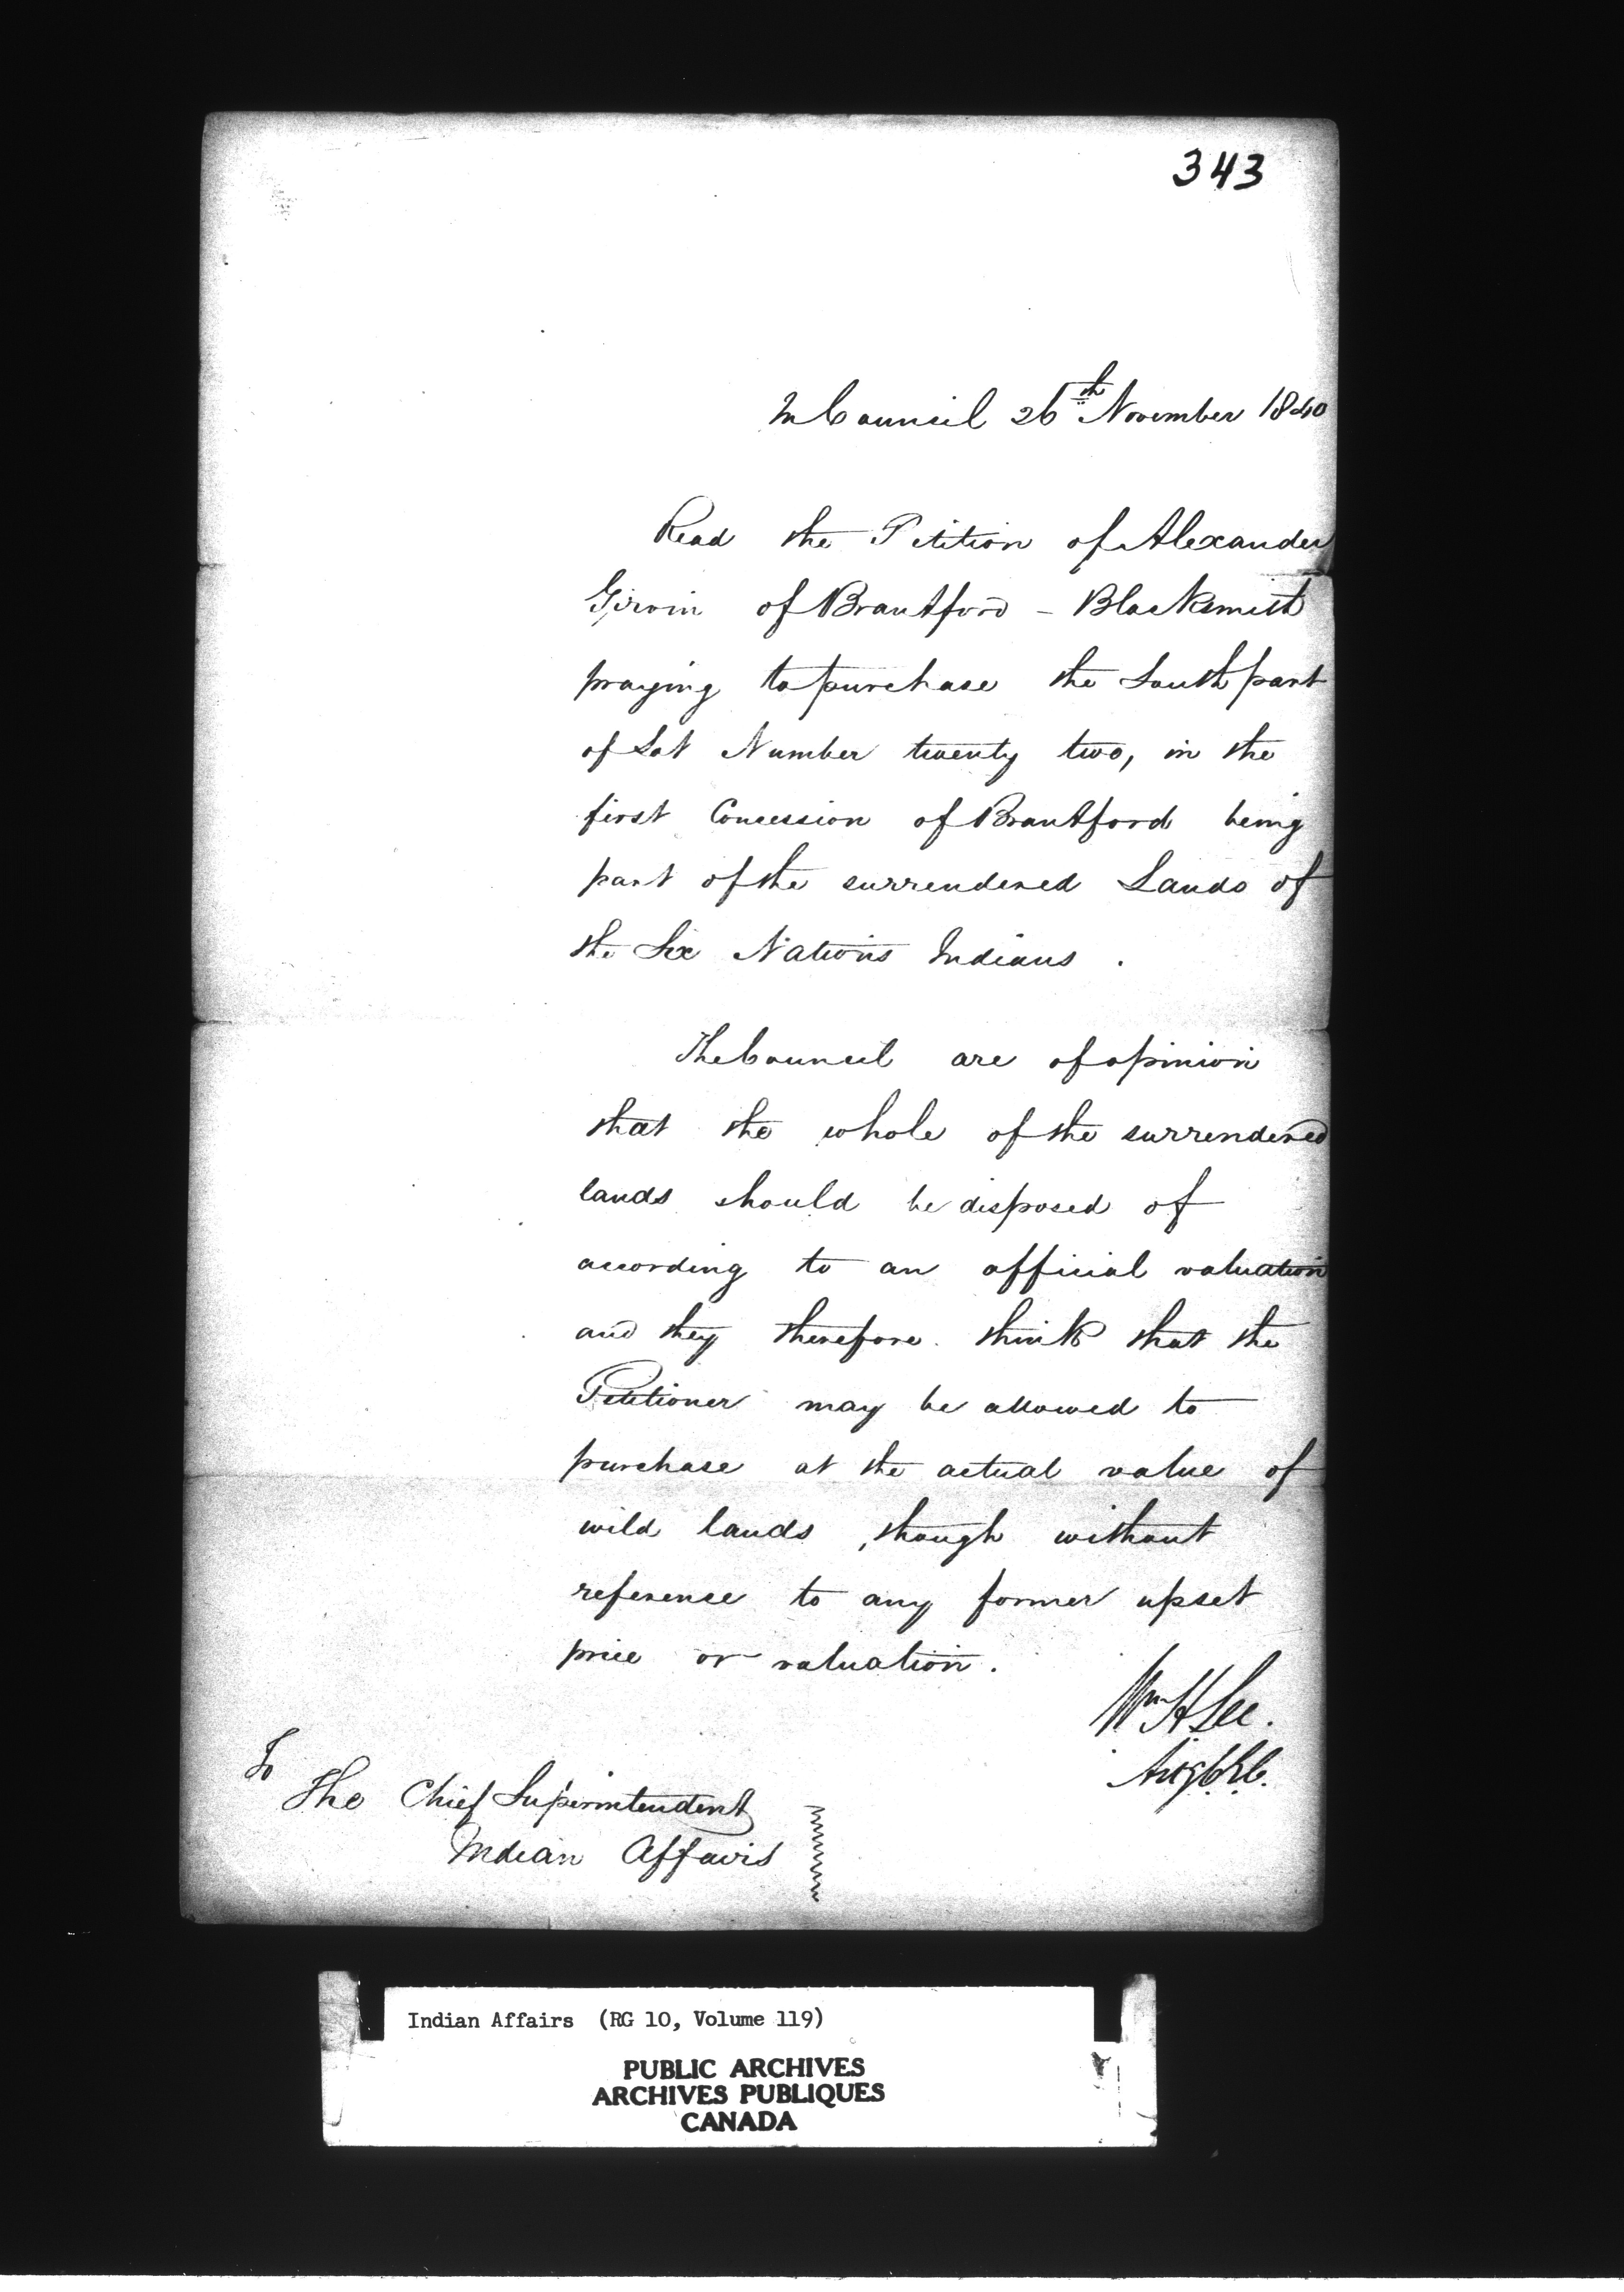 343
In Council 26th November 1840
Read the Petition of Alexander
Girvin of Brantford - Blacksmith
praying to purchase the South part
of Lot Number twenty two, in the
first Concession of Brantford being
part of the surrendered Lands of
the Six Nations Indians .
The Council are of opinion
that the whole of the surrendered
lands should be disposed of
according to an official valuation
and they therefore think that the
Petitioner may be allowed to
purchase at the actual value of
wild lands, though without
reference to any former upset
price or valuation.
Wm H Lee.
To
The Chief Superintendent
Indian Affairs
Indian Affairs (RG 10, Volume 119)
PUBLIC ARCHIVES
ARCHIVES PUBLIQUES
CANADA